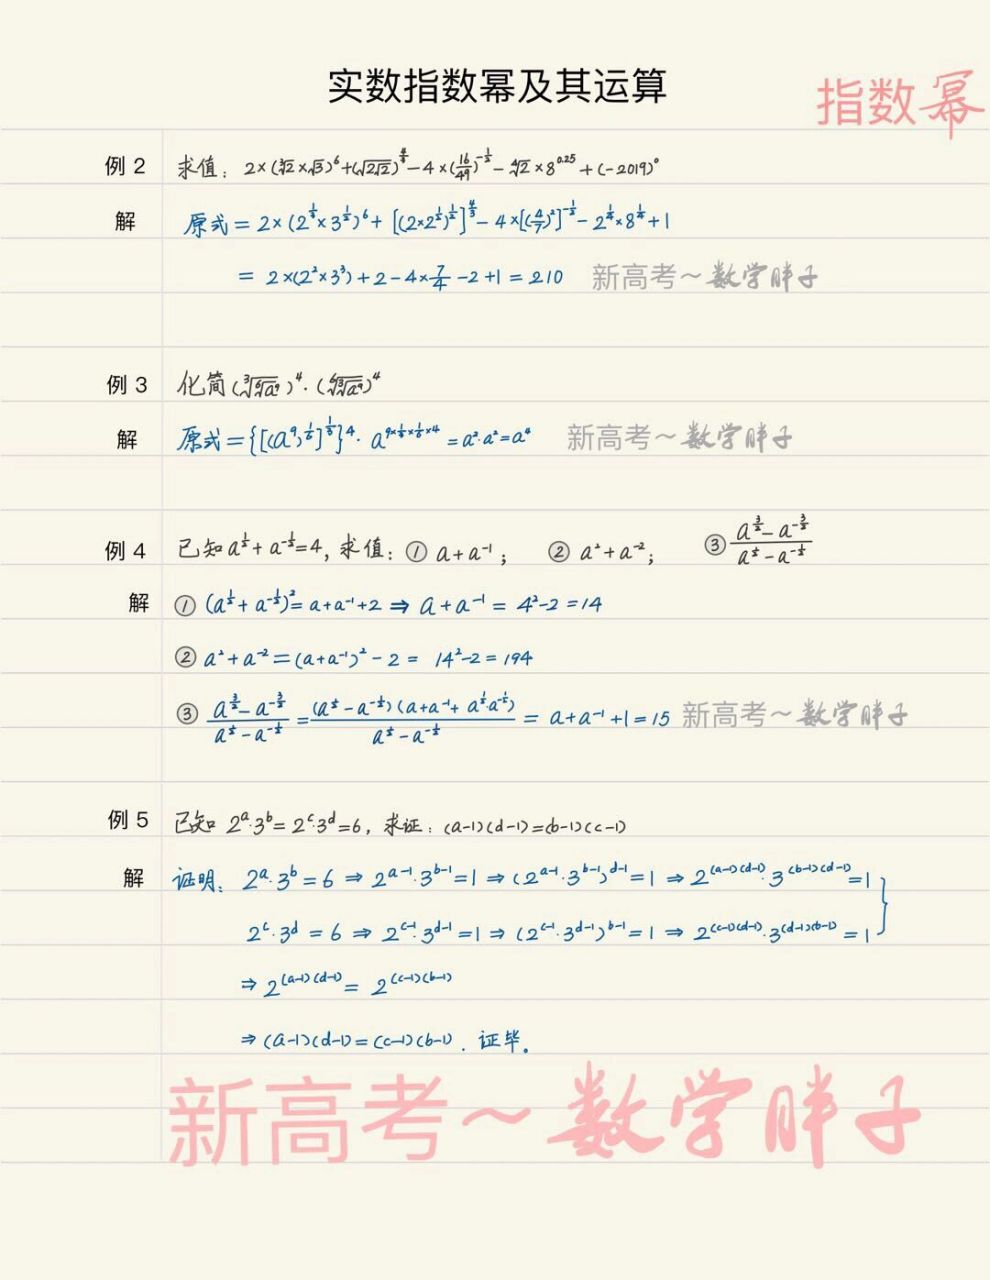 实数指数幂及其运算
指数幂
例 2 求值：2×(∛2×√3)⁶+(√(2√2))^(4/3)−4×(16/49)^(−1/2)−∜2×8^0.25+(−2019)⁰
解 原式=2×(2^(1/3)×3^(1/2))⁶+[(2×2^(1/2))^(1/2)]^(4/3)−4×[(4/7)²]^(−1/2)−2^(1/4)×8^(1/4)+1
=2×(2²×3³)+2−4×7/4−2+1=210 新高考～数学胖子
例 3 化简(∛(⁶√a⁹))⁴·(⁶√(∛a⁹))⁴
解 原式={[(a⁹)^(1/6)]^(1/3)}⁴·a^(9×1/3×1/6×4)=a²·a²=a⁴ 新高考～数学胖子
例 4 已知a^(1/2)+a^(−1/2)=4,求值：① a+a⁻¹; ② a²+a⁻²; ③ (a^(3/2)−a^(−3/2))/(a^(1/2)−a^(−1/2))
解 ① (a^(1/2)+a^(−1/2))²=a+a⁻¹+2⇒a+a⁻¹=4²−2=14
② a²+a⁻²=(a+a⁻¹)²−2=14²−2=194
③ (a^(3/2)−a^(−3/2))/(a^(1/2)−a^(−1/2))=(a^(1/2)−a^(−1/2))(a+a⁻¹+a^(1/2)a^(−1/2))/(a^(1/2)−a^(−1/2))=a+a⁻¹+1=15 新高考～数学胖子
例 5 已知 2^a·3^b=2^c·3^d=6,求证：(a−1)(d−1)=(b−1)(c−1)
解 证明：2^a·3^b=6⇒2^(a−1)·3^(b−1)=1⇒(2^(a−1)·3^(b−1))^(d−1)=1⇒2^((a−1)(d−1))·3^((b−1)(d−1))=1}
2^c·3^d=6⇒2^(c−1)·3^(d−1)=1⇒(2^(c−1)·3^(d−1))^(b−1)=1⇒2^((c−1)(d−1))·3^((d−1)(b−1))=1
⇒2^((a−1)(d−1))=2^((c−1)(b−1))
⇒(a−1)(d−1)=(c−1)(b−1).证毕。
新高考～数学胖子